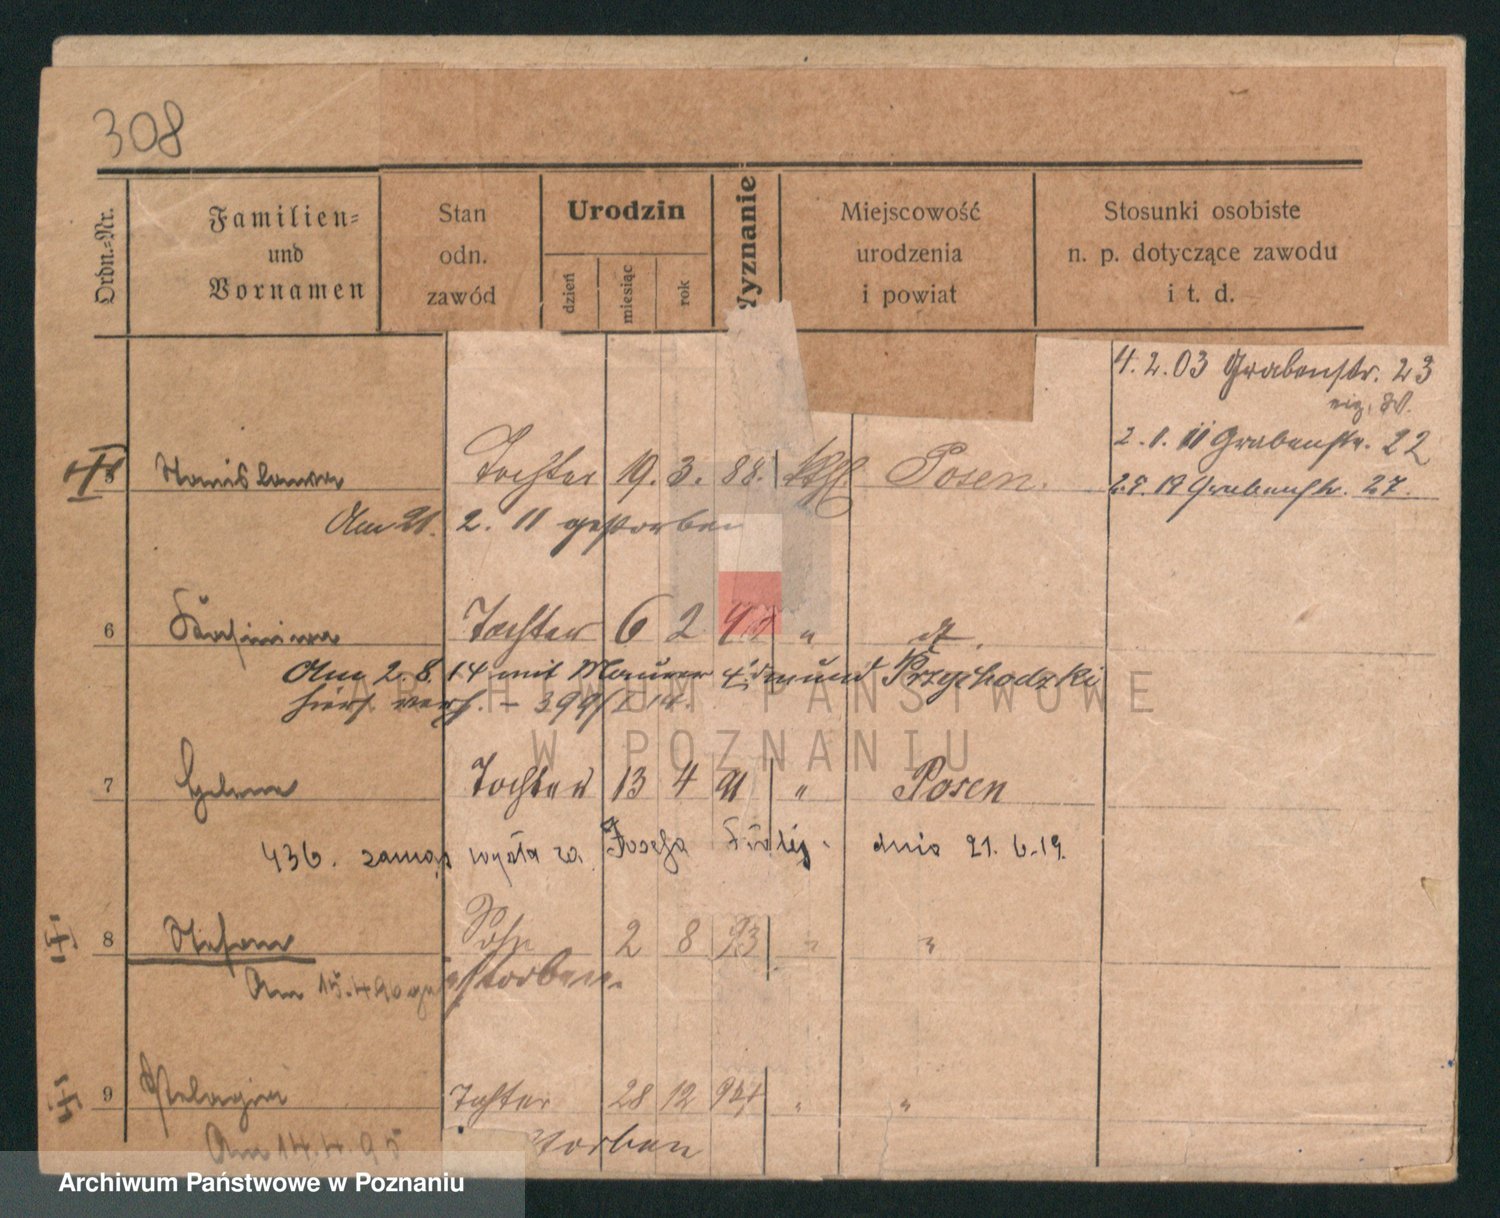 308
Ordn.-Nr.
Familien-
und
Vornamen
Stan
odn.
zawód
Urodzin
dzień
miesiąc
rok
Wyznanie
Miejscowość
urodzenia
i powiat
Stosunki osobiste
n. p. dotyczące zawodu
i t. d.
4.2.03 Grabenstr. 23
2.1.11 Grabenstr. 22
Stanislawa Tochter 19. 3. 88. kth. Posen.
Grabenstr. 27.
Am 21. 2. 11 gestorben
6 Tochter 6 2 " "
Am 2.8.14 mit Maurer Edmund Przychodzki
hier verh. - 399/14.
ARCHIWUM PAŃSTWOWE
W POZNANIU
7 Helena Tochter 13 4 91 " Posen
436. zamąż wyszła za Józefa dnia 21.6.19.
8 Stefan Sohn 2 8 93 " "
Am 15.4.90 gestorben.
9 Pelagia Tochter 28 12 94 " "
Am 14.4.95 storben
Archiwum Państwowe w Poznaniu